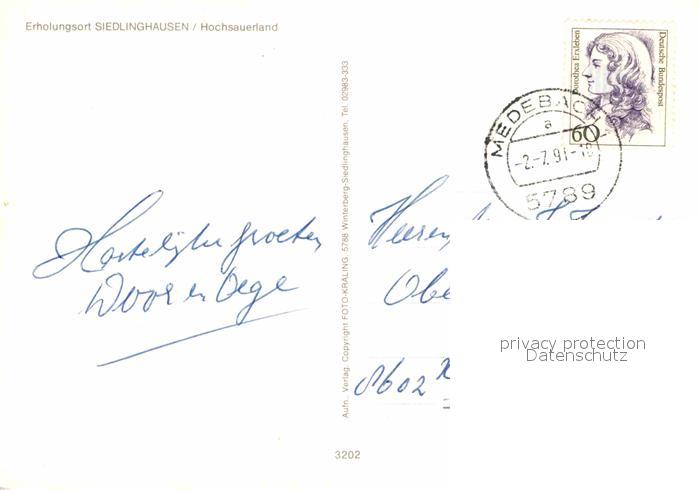 Erholungsort SIEDLINGHAUSEN / Hochsauerland
Deutsche Bundespost
Dorothea Erxleben
60
MEDEBACH
a
-2.-7.91-18
5789
Hartelijke groeten
Aufn., Verlag, Copyright FOTO-KRALING, 5788 Winterberg-Siedlinghausen, Tel. 02983-333
Obe
8602
privacy protection
Datenschutz
3202